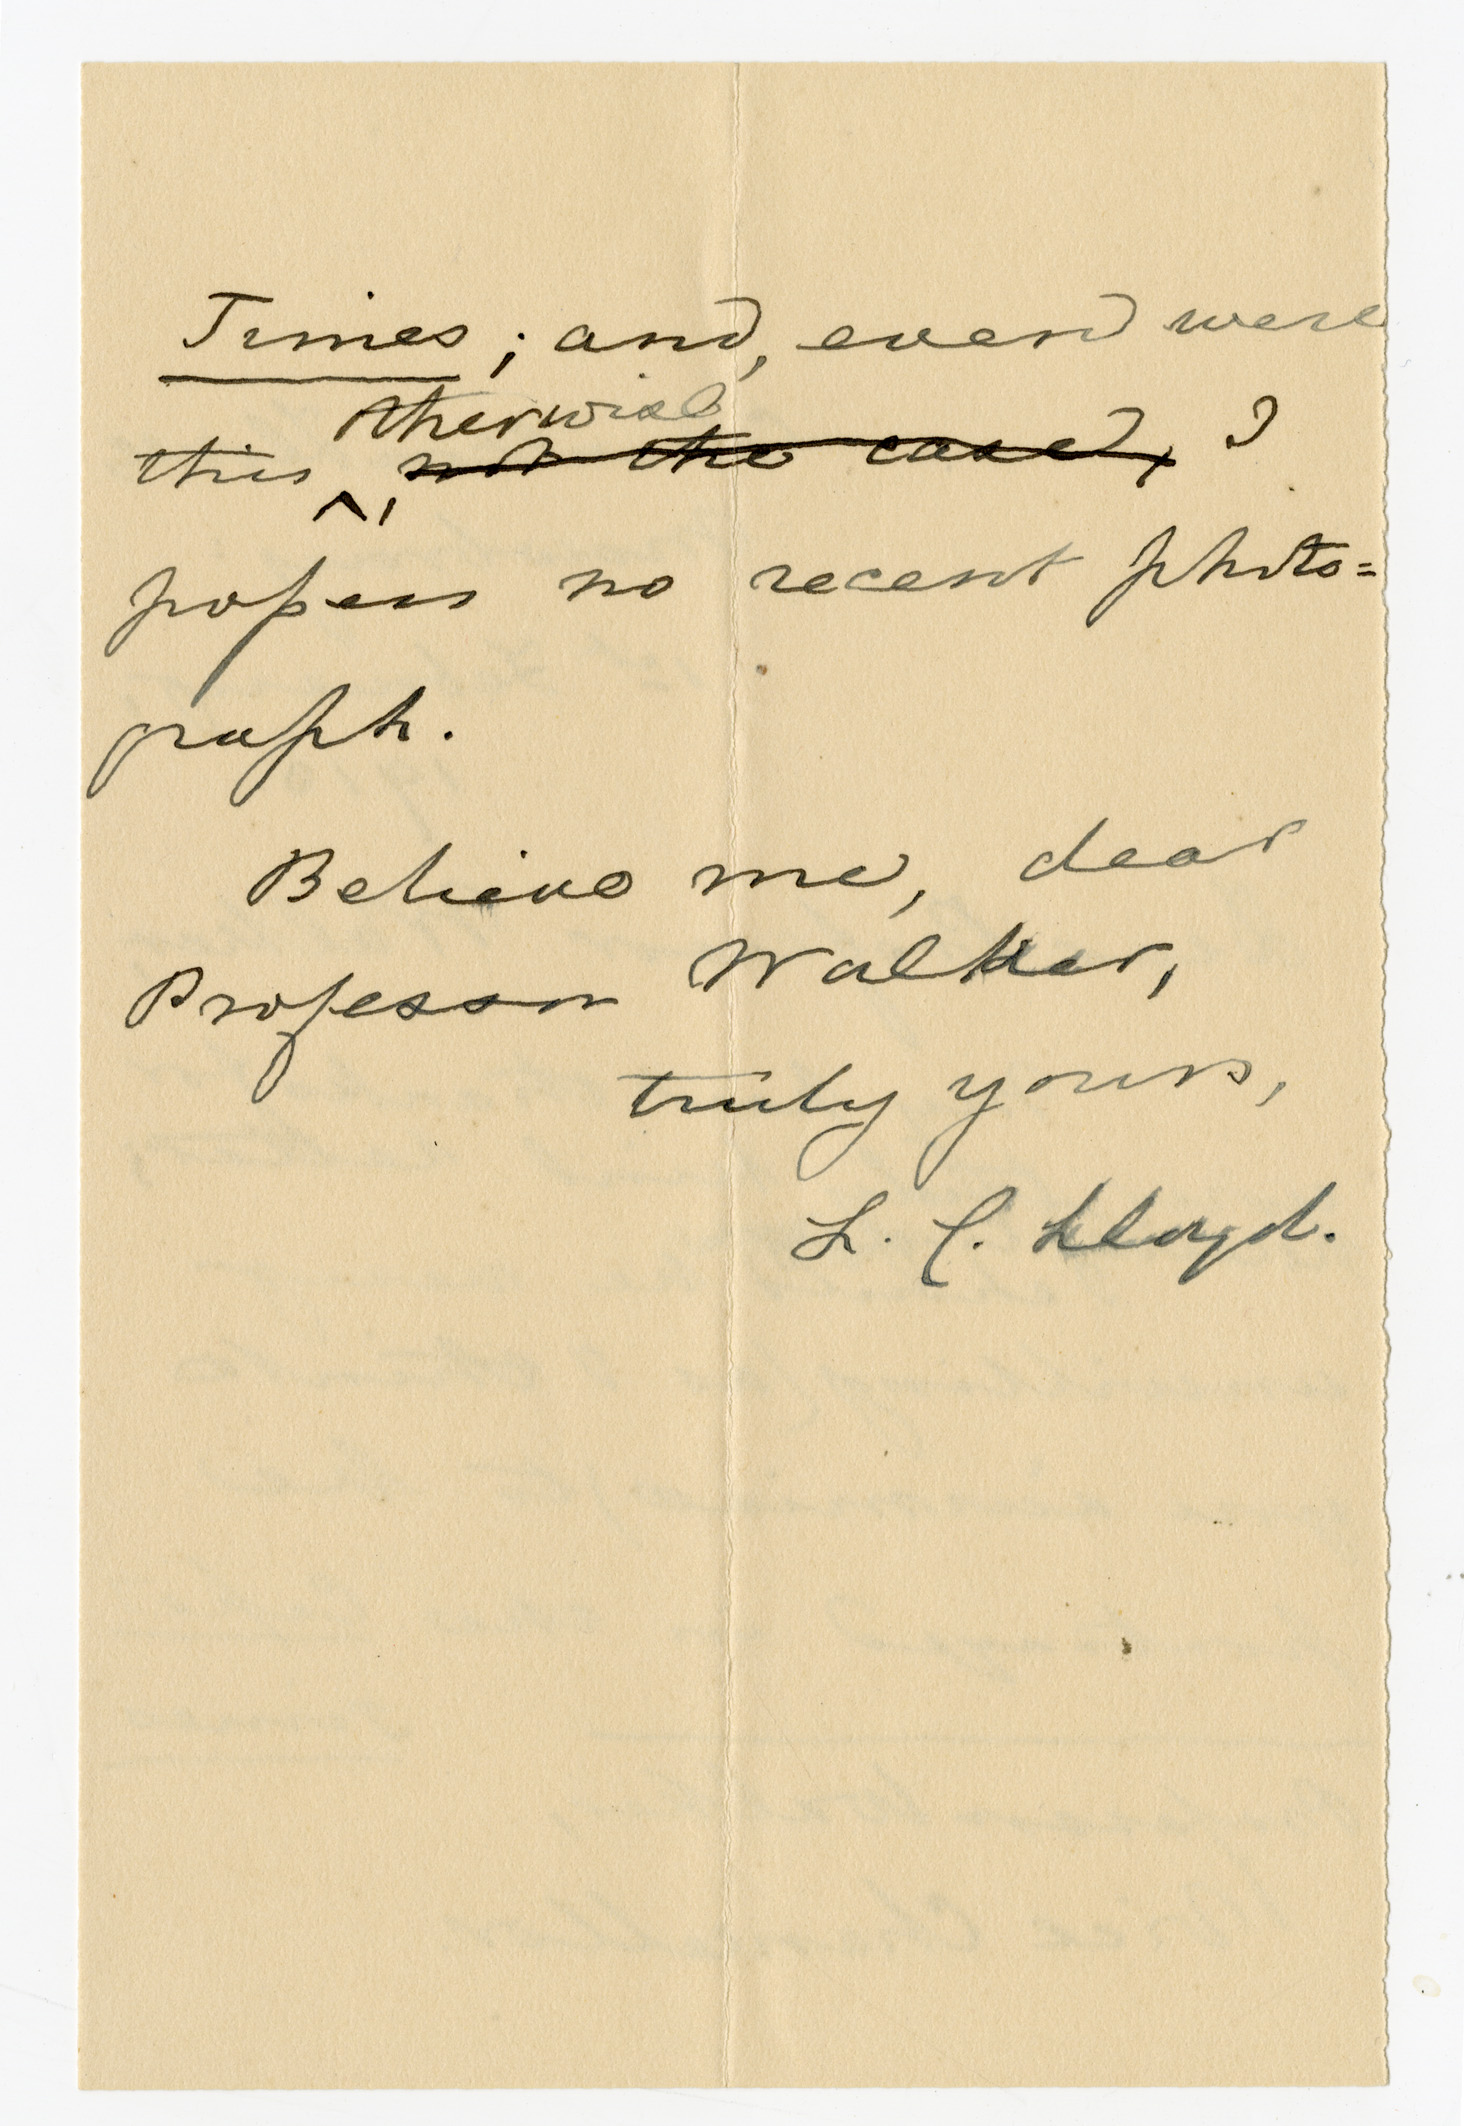 Times; and, even were
otherwise
this ^, not the case, I
possess no recent photo=
graph.
Believe me, dear
Professor Walker,
truly yours,
L. C. Lloyd.